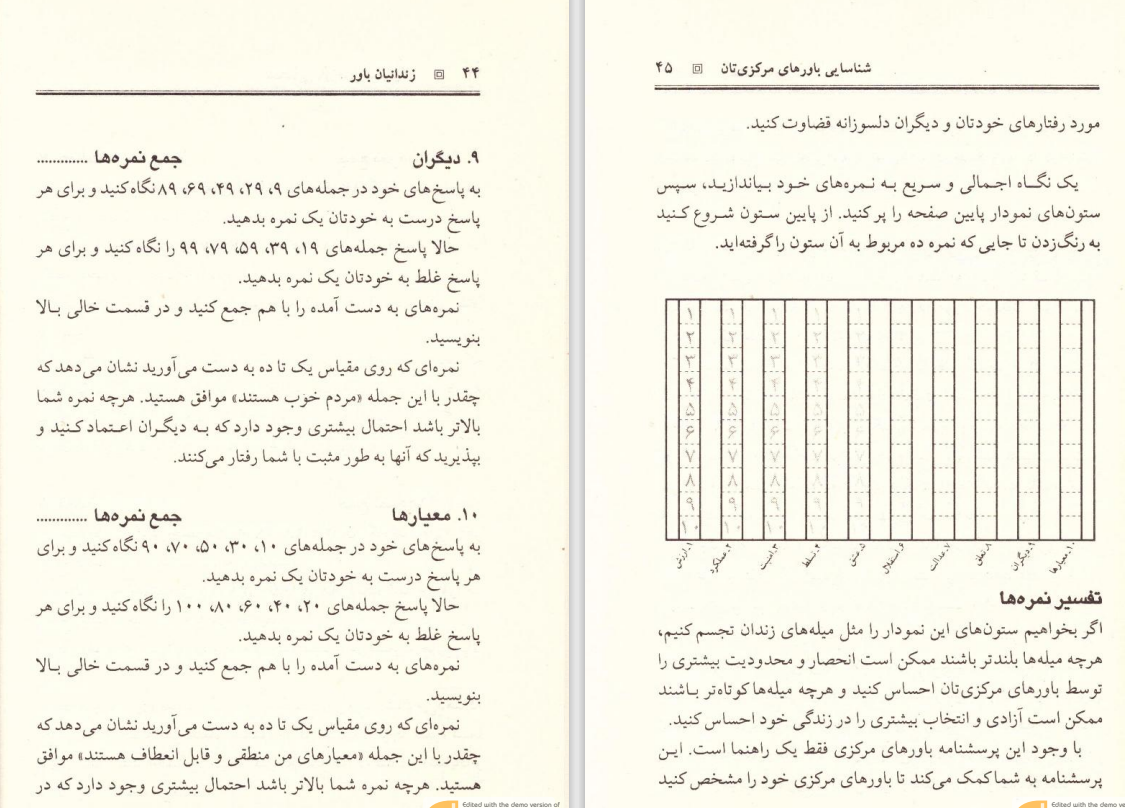 ۴۴ زندانیان باور
۹. دیگران جمع نمره‌ها .............
به پاسخ‌های خود در جمله‌های ۹، ۲۹، ۴۹، ۶۹، ۸۹ نگاه کنید و برای هر
پاسخ درست به خودتان یک نمره بدهید.
حالا پاسخ جمله‌های ۱۹، ۳۹، ۵۹، ۷۹، ۹۹ را نگاه کنید و برای هر
پاسخ غلط به خودتان یک نمره بدهید.
نمره‌های به دست آمده را با هم جمع کنید و در قسمت خالی بالا
بنویسید.
نمره‌ای که روی مقیاس یک تا ده به دست می‌آورید نشان می‌دهد که
چقدر با این جمله «مردم خوب هستند» موافق هستید. هرچه نمره شما
بالاتر باشد احتمال بیشتری وجود دارد که به دیگران اعتماد کنید و
بپذیرید که آنها به طور مثبت با شما رفتار می‌کنند.
۱۰. معیارها جمع نمره‌ها .............
به پاسخ‌های خود در جمله‌های ۱۰، ۳۰، ۵۰، ۷۰، ۹۰ نگاه کنید و برای
هر پاسخ درست به خودتان یک نمره بدهید.
حالا پاسخ جمله‌های ۲۰، ۴۰، ۶۰، ۸۰، ۱۰۰ را نگاه کنید و برای هر
پاسخ غلط به خودتان یک نمره بدهید.
نمره‌های به دست آمده را با هم جمع کنید و در قسمت خالی بالا
بنویسید.
نمره‌ای که روی مقیاس یک تا ده به دست می‌آورید نشان می‌دهد که
چقدر با این جمله «معیارهای من منطقی و قابل انعطاف هستند» موافق
هستید. هرچه نمره شما بالاتر باشد احتمال بیشتری وجود دارد که در
Edited with the demo version of
شناسایی باورهای مرکزی‌تان ۴۵
مورد رفتارهای خودتان و دیگران دلسوزانه قضاوت کنید.
یک نگاه اجمالی و سریع به نمره‌های خود بیاندازید، سپس
ستون‌های نمودار پایین صفحه را پر کنید. از پایین ستون شروع کنید
به رنگ‌زدن تا جایی که نمره ده مربوط به آن ستون را گرفته‌اید.
۱ ۱ ۱ ۱ ۱
۲ ۲ ۲ ۲ ۲
۳ ۳ ۳ ۳ ۳
۴ ۴ ۴ ۴ ۴
۵ ۵ ۵ ۵ ۵
۶ ۶ ۶ ۶ ۶
۷ ۷ ۷ ۷ ۷
۸ ۸ ۸ ۸ ۸
۹ ۹ ۹ ۹ ۹
۱۰ ۱۰ ۱۰ ۱۰
۱. ارزش
۲. عملکرد
۳. امنیت
۴. تسلط
۵. عشق
۶. استقلال
۷. عدالت
۸. تعلق
۹. دیگران
۱۰. معیارها
تفسیر نمره‌ها
اگر بخواهیم ستون‌های این نمودار را مثل میله‌های زندان تجسم کنیم،
هرچه میله‌ها بلندتر باشند ممکن است انحصار و محدودیت بیشتری را
توسط باورهای مرکزی‌تان احساس کنید و هرچه میله‌ها کوتاه‌تر باشند
ممکن است آزادی و انتخاب بیشتری را در زندگی خود احساس کنید.
با وجود این پرسشنامه باورهای مرکزی فقط یک راهنما است. این
پرسشنامه به شما کمک می‌کند تا باورهای مرکزی خود را مشخص کنید
Edited with the demo ve